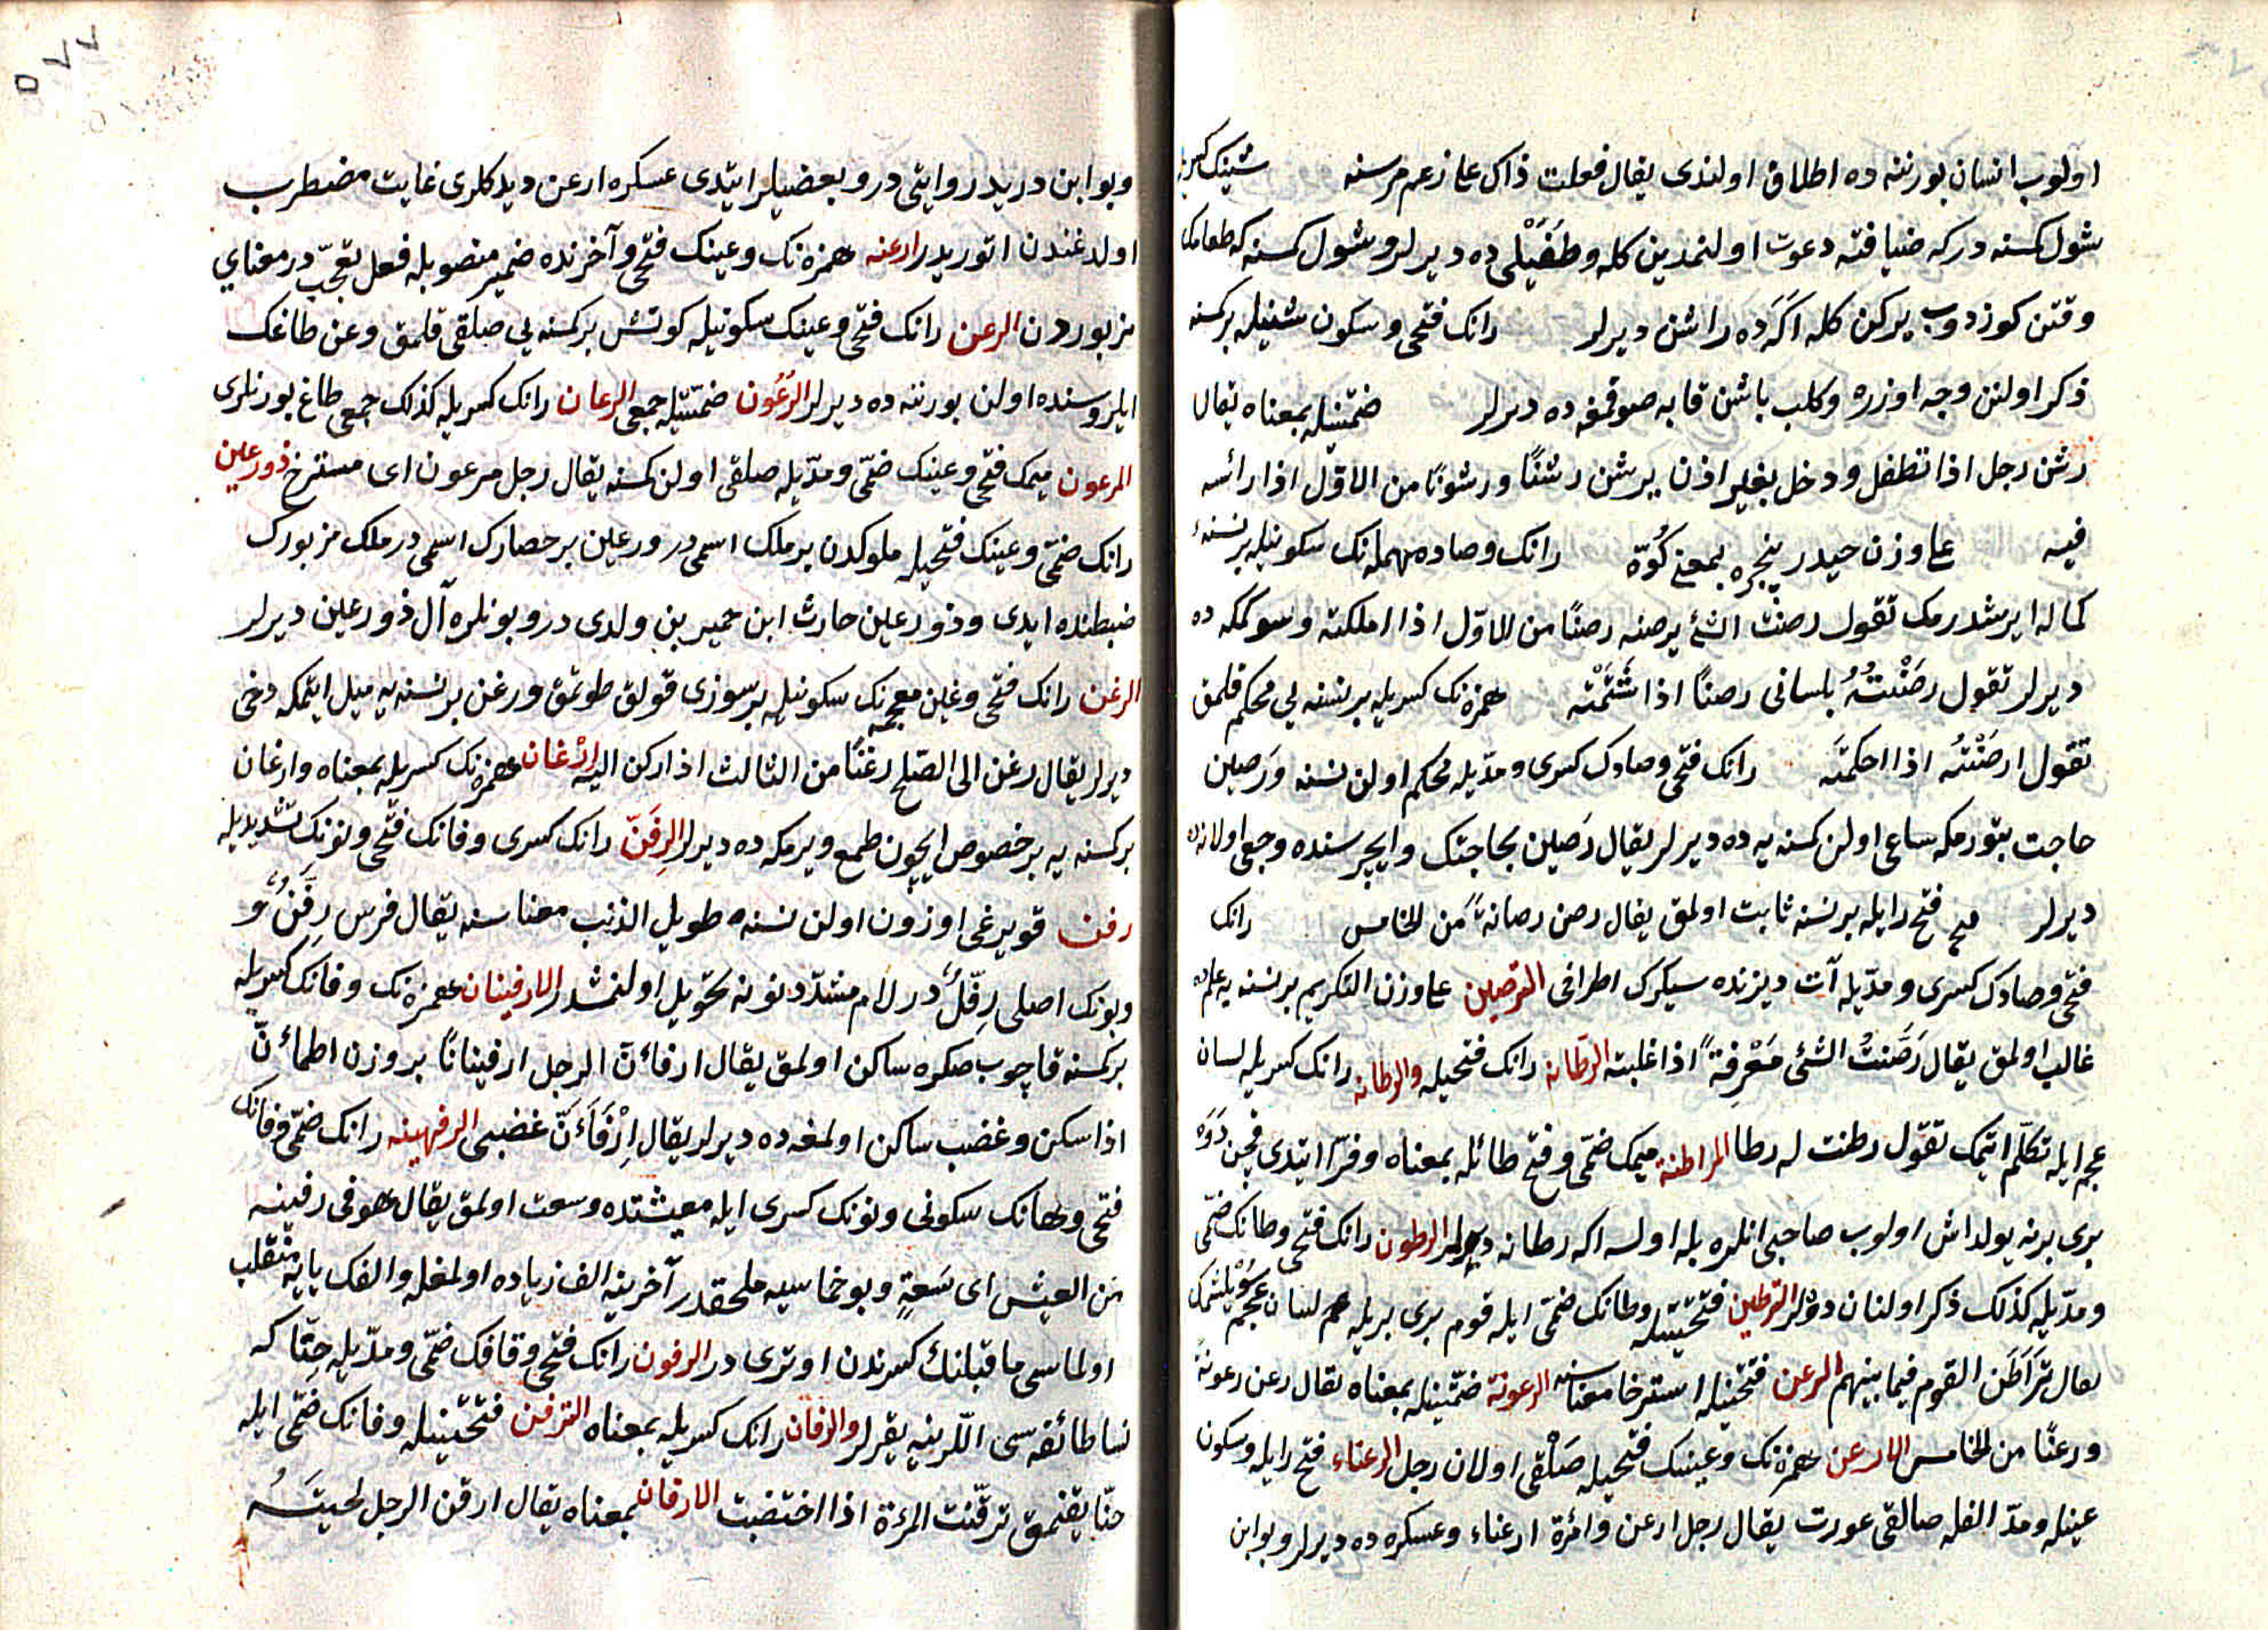 اولوب انسان بورننه ده اطلاق اولندی يقال فعلت ذاك على زعم مرسنه شينك كسريله
شول كسنه در كه ضيافته دعوت اولنمدين كله وطفَيْلی ده ديرلر و شول كسنه كه طعامك
وقتن كوزدوب يركن كله اكَرَده راشن ديرلر رانك فتحی و سكون شنيله بركسنه
ذكر اولنن وجه اوزره وكلب باشن قابه صوقمغه ده ديرلر ضمّتينله بمعناه يقال
رشن رجل اذا تطفل ودخل بغير اذن يرشن رشنًا ورشونًا من الاوّل اذا رائسه
فيه على وزن حيدر پنجره بمعنى كُوّة رانك وصاد مهمله نك سكونيله برنسنهٔ
كماله ايرشدرمك تقول رصنت الشئ يرصنه رصنًا من الاوّل اذا املكته وسوكمكه ده
ديرلر تقول رصَنْتُهُ بلسانی رصنًا اذا شَتَمْته همزه نك كسريله برنسنه يی محكم قلمق
تقول ارصَنْتُه اذا احكمتَه رانك فتحی وصادك كسری ومدّيله محكم اولن نسنه ورَصين
حاجت بتورمكه ساعی اولن كسنه يه ده ديرلر يقال رَصين بحاجتك وايچرسنده وجعی اولانه ده
ديرلر فتح رايله برنسنه ثابت اولمق يقال رصن رصانةً من الخامس رانك
فتحی وصادك كسری ومدّيله آت ديزنده سيكرك اطرافی الترصين على وزن التكريم برنسنه يه علمله
غالب اولمق يقال رَصَنتُ الشئی مَعْرِفةً اذا غلبته الرَطانه رانك فتحيله والرطانه رانك كسريله لسان
عجم ايله تكلّم ايتمك تقول رطنت له رطا المراطنة ميمك ضمّی وفتح طائله بمعناه وفرّا ايتدی قچن دَوَه
بری برنه يولداش اولوب صاحبی انلره بله اولسه اكه رطانه ديرلر الرطون رانك فتحی وطانك ضمّی
ومدّيله كذلك ذكر اولنان دوَلر الترطين فتحتينله وطانك ضمّی ايله قوم بری بريله هم لسان عجم سُويلشمك
يقال تَرَاطَن القوم فيما بينهم الرعن فتحتينله استرخا معناسنه الرعونة ضمّتينله بمعناه يقال رعن رعونةً
ورعنًا من الخامس الارعن همزه نك وعينك فتحيله صَلْقی اولان رجل الرعناء فتح رايله وسكون
عينله ومدّ الفله صالقی عورت يقال رجل ارعن وامرٔة ارعناء وعسكره ده ديرلر وبو ابن
وبو ابن دريد روايتی در وبعضيلر ايتدی عسكره ارعن ديدكلری غايت مضطرب
اولدغندن اتوريدر ارعنه همزه نك وعينك فتحی وآخرنده ضمير منصوبله فعل تعجّب در معنای
مزبوردن الرعن رانك فتحی وعينك سكونيله كونش بركسنه يی صلقی قلمق وعن طاغك
ايلروسنده اولن بورننه ده ديرلر الرُعُون ضمتينله جمعی الرعان رانك كسريله كذلك جمعی طاغ بورنلری
المرعون ميمك فتحی وعينك ضمّی ومدّيله صلقی اولن كسنه يقال رجل مرعون ای مسترخ ذورعين
رانك ضمّی وعينك فتحيله ملوكدن برملك اسمی در ورعين برحصارك اسمی در ملك مزبورك
ضبطنده ايدی وذورعين حارث ابن حمير بن ولدی در وبونلره آل ذورعين ديرلر
الرغن رانك فتحی وغين معجمه نك سكونيله برسوزی قولق طوتمق ورغن برنسنه يه ميل ايتمكه دخی
ديرلر يقال رغن الى الصّلح رغنًا من الثالث اذا ركن اليه ارْغان همزه نك كسريله بمعناه وارغان
بركسنه يه برخصوص ايچون طمع ويرمكه ده ديرلر الرِفَنّ رانك كسری وفانك فتحی ونونك تشديديله
رفن قويرغی اوزون اولن نسنه طويل الذنب معناسنه يقال فرس رِفَنٌّ و
وبونك اصلی رِفَلٌّ در لام مشدّد نونه تحويل اولنمشدر الارفينان همزه نك وفانك كسريله
بركسنه قاچوب صكره ساكن اولمق يقال ارفأنّ الرجل ارفينانًا بر وزن اطمأنّ
اذا سكن وغضب ساكن اولمغه ده ديرلر يقال اِرْفَأَنَّ غضبی الرفهينه رانك ضمّی وفانك
فتحی وهانك سكونی ونونك كسری ايله معيشتده وسعت اولمق يقال هو فی رفينه
من العيش ای سَعةٍ وبو خماسيه ملحقدر آخرينه الف زياده اولمغله والفك يايه منقلب
اولماسی ماقبلنك كسرندن اوتری در الرفون رانك فتحی وقافك ضمّی ومدّيله حِنّا كه
نسا طائفه سی اللّرينه يقرلر والرقان رانك كسريله بمعناه الترقن فتحتينله وفانك ضمّی ايله
حنّا يقنمق ترقّنت المرءة اذا اختضبت الارقان بمعناه يقال ارقن الرجل لحيتَهُ